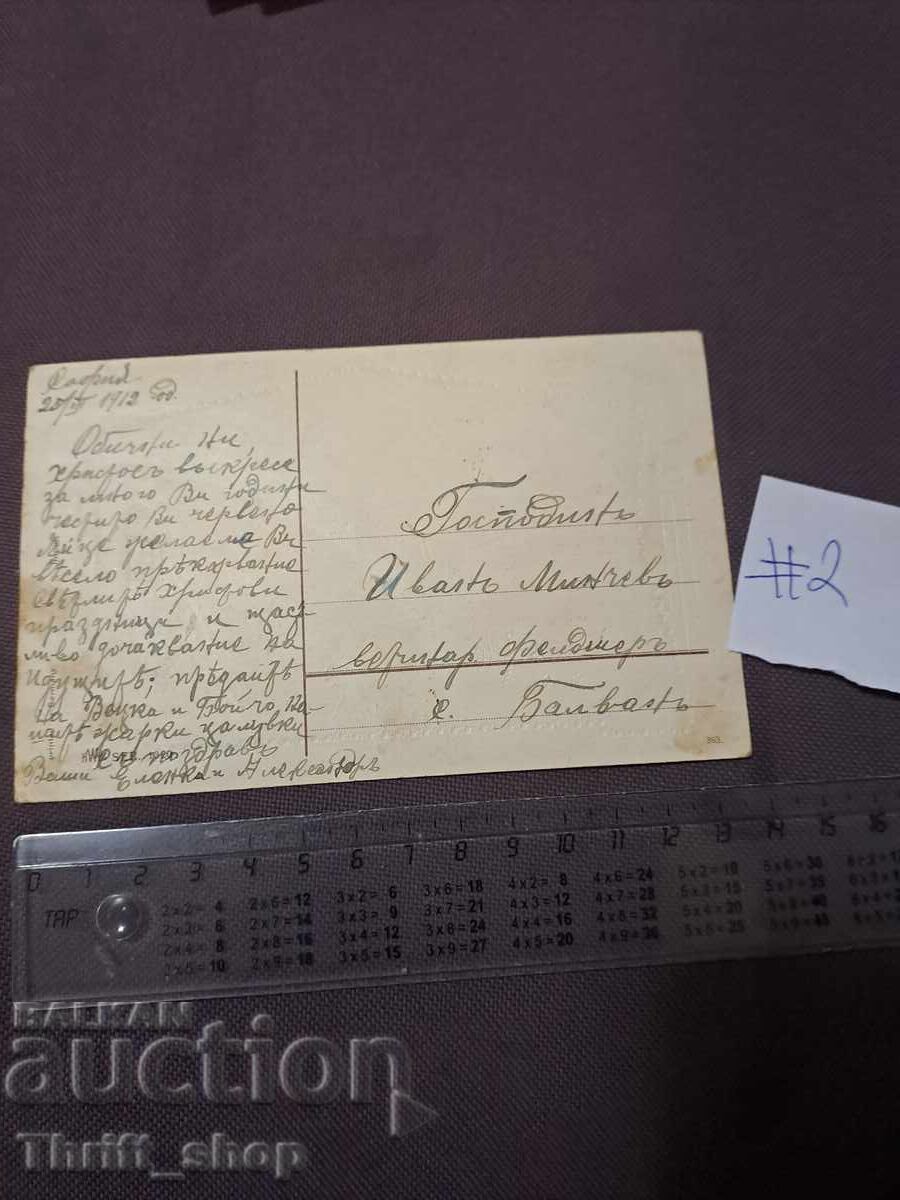 София
25/III 1912 год.
Обични ни,
Христосъ выскресе
за много Ви години
честито Ви червено
Яйце желаеме Ви
вѣсело прѣкарвание
свѣтлитѣ Христови
праздници и щаст
ливо дочаквание на
прѣдайтѣ
на Вецка и Бойчо, на
шитѣ жарки цалувки
Съ поздравъ
Ваши Еленка и Александръ
Господинъ
Иванъ Минчевъ
ветинар фелдшеръ
с. Балванъ
363.
#2
0 1 2 3 4 5 6 7 8 9 10 11 12 13 14 15 16
TAP
2x2= 4 2x6=12 3x2= 6 3x6=18 4x2= 8 4x6=24 5x2=10 5x6=30 6x2=12
2x3= 6 2x7=14 3x3= 9 3x7=21 4x3=12 4x7=28 5x3=15 5x7=35
2x4= 8 2x8=16 3x4=12 3x8=24 4x4=16 4x8=32 5x4=20 5x8=40
2x5=10 2x9=18 3x5=15 3x9=27 4x5=20 4x9=36 5x5=25 5x9=45
BALKAN
auction
Thrift_shop